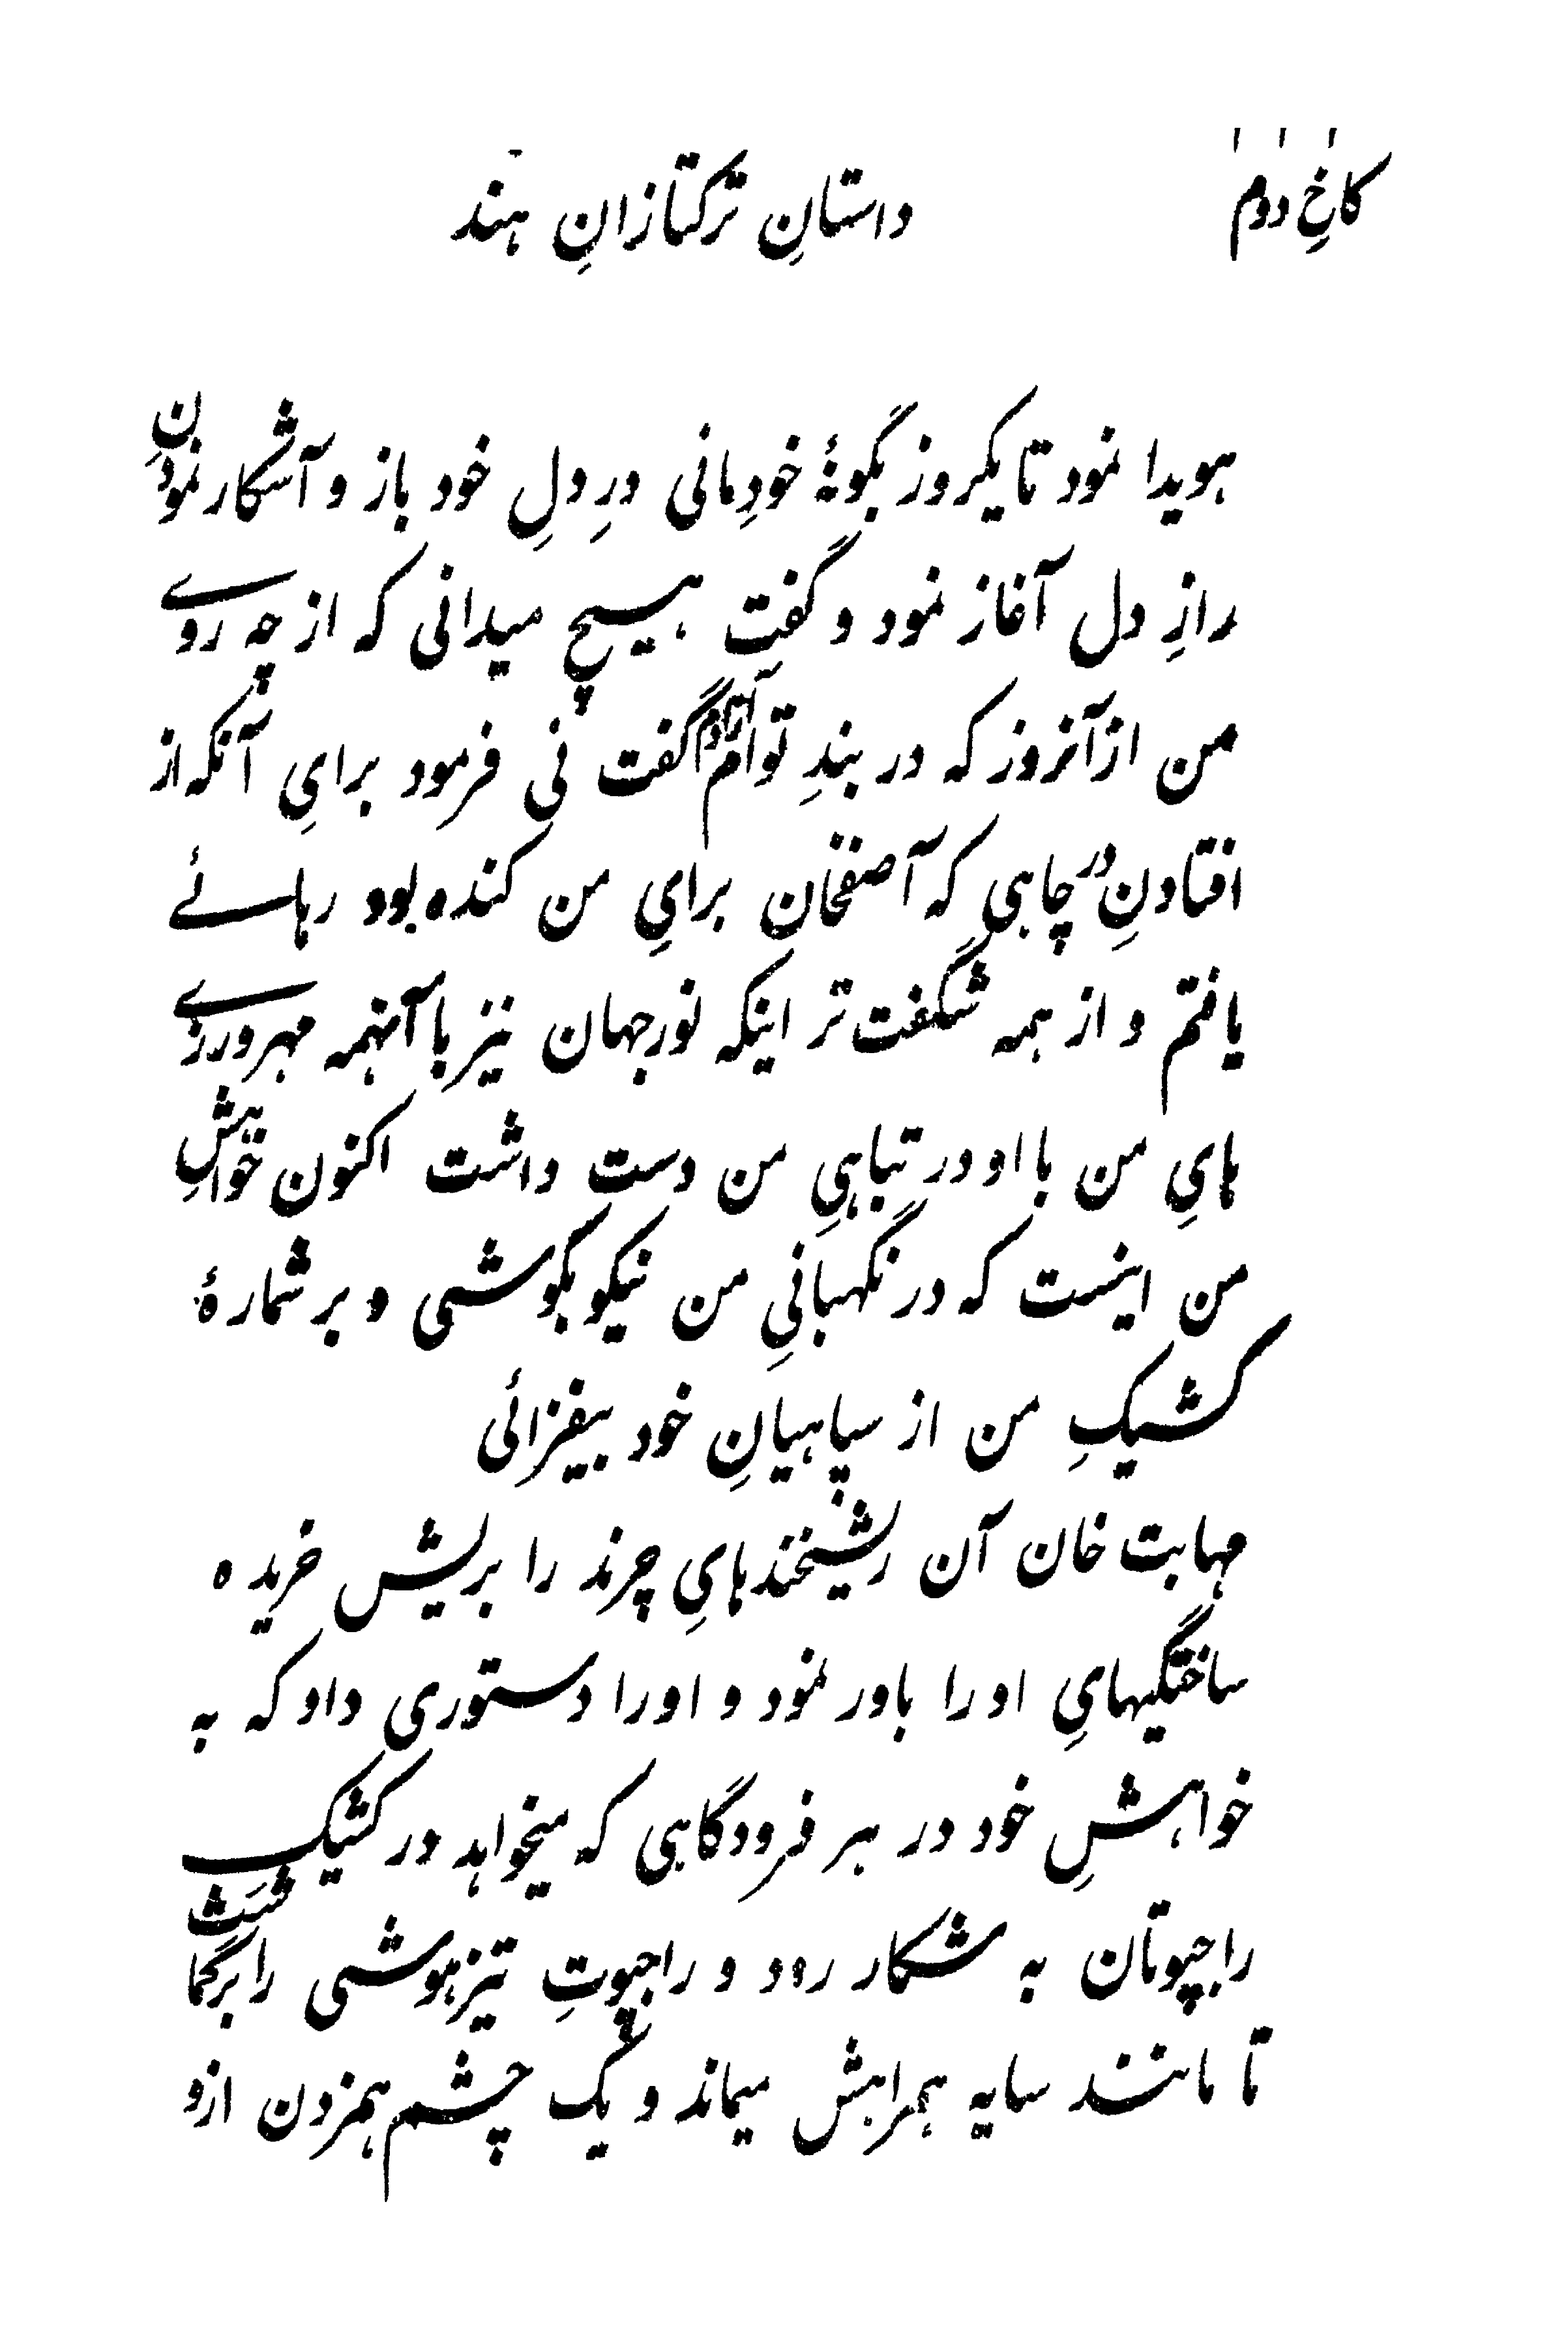 کاخِ دوم
داستانِ ترکتازانِ هند
هویدا نمود تا یکروز بگونهٔ خودمانی درِ دلِ خود باز و آشکار نمودنِ
رازِ دل آغاز نمود و گفت هیچ میدانی که از چه روے
من ازآنروز که در بندِ تو آرام گفت نی فرمود برایِ آنکه از
افتادنِ در چاهی که آصفخان برایِ من کنده بود رهائے
یافتم و از همه شگفت تر اینکه نورجهان نیز با آنهمه مهرورزے
هایِ من با او در تباهیِ من دست داشت اکنون خواهشِ
من اینست که در نگهبانیِ من نیکو بکوشی و بر شمارهٔ
کشیکِ من از سپاهیانِ خود بیفزائی
مهابت خان آن ریشخندهایِ چرند را بریش خریده
ساختگیهایِ او را باور نمود و اورا دستوری داد که به
خواهشِ خود در هر فرودگاهی که میخواهد در کشیک
راجپوتان به شکار رود و راجپوتِ تیزهوشی را برگماشت
تا مانند سایه همراهش میماند و یک چشم همزدن ازو